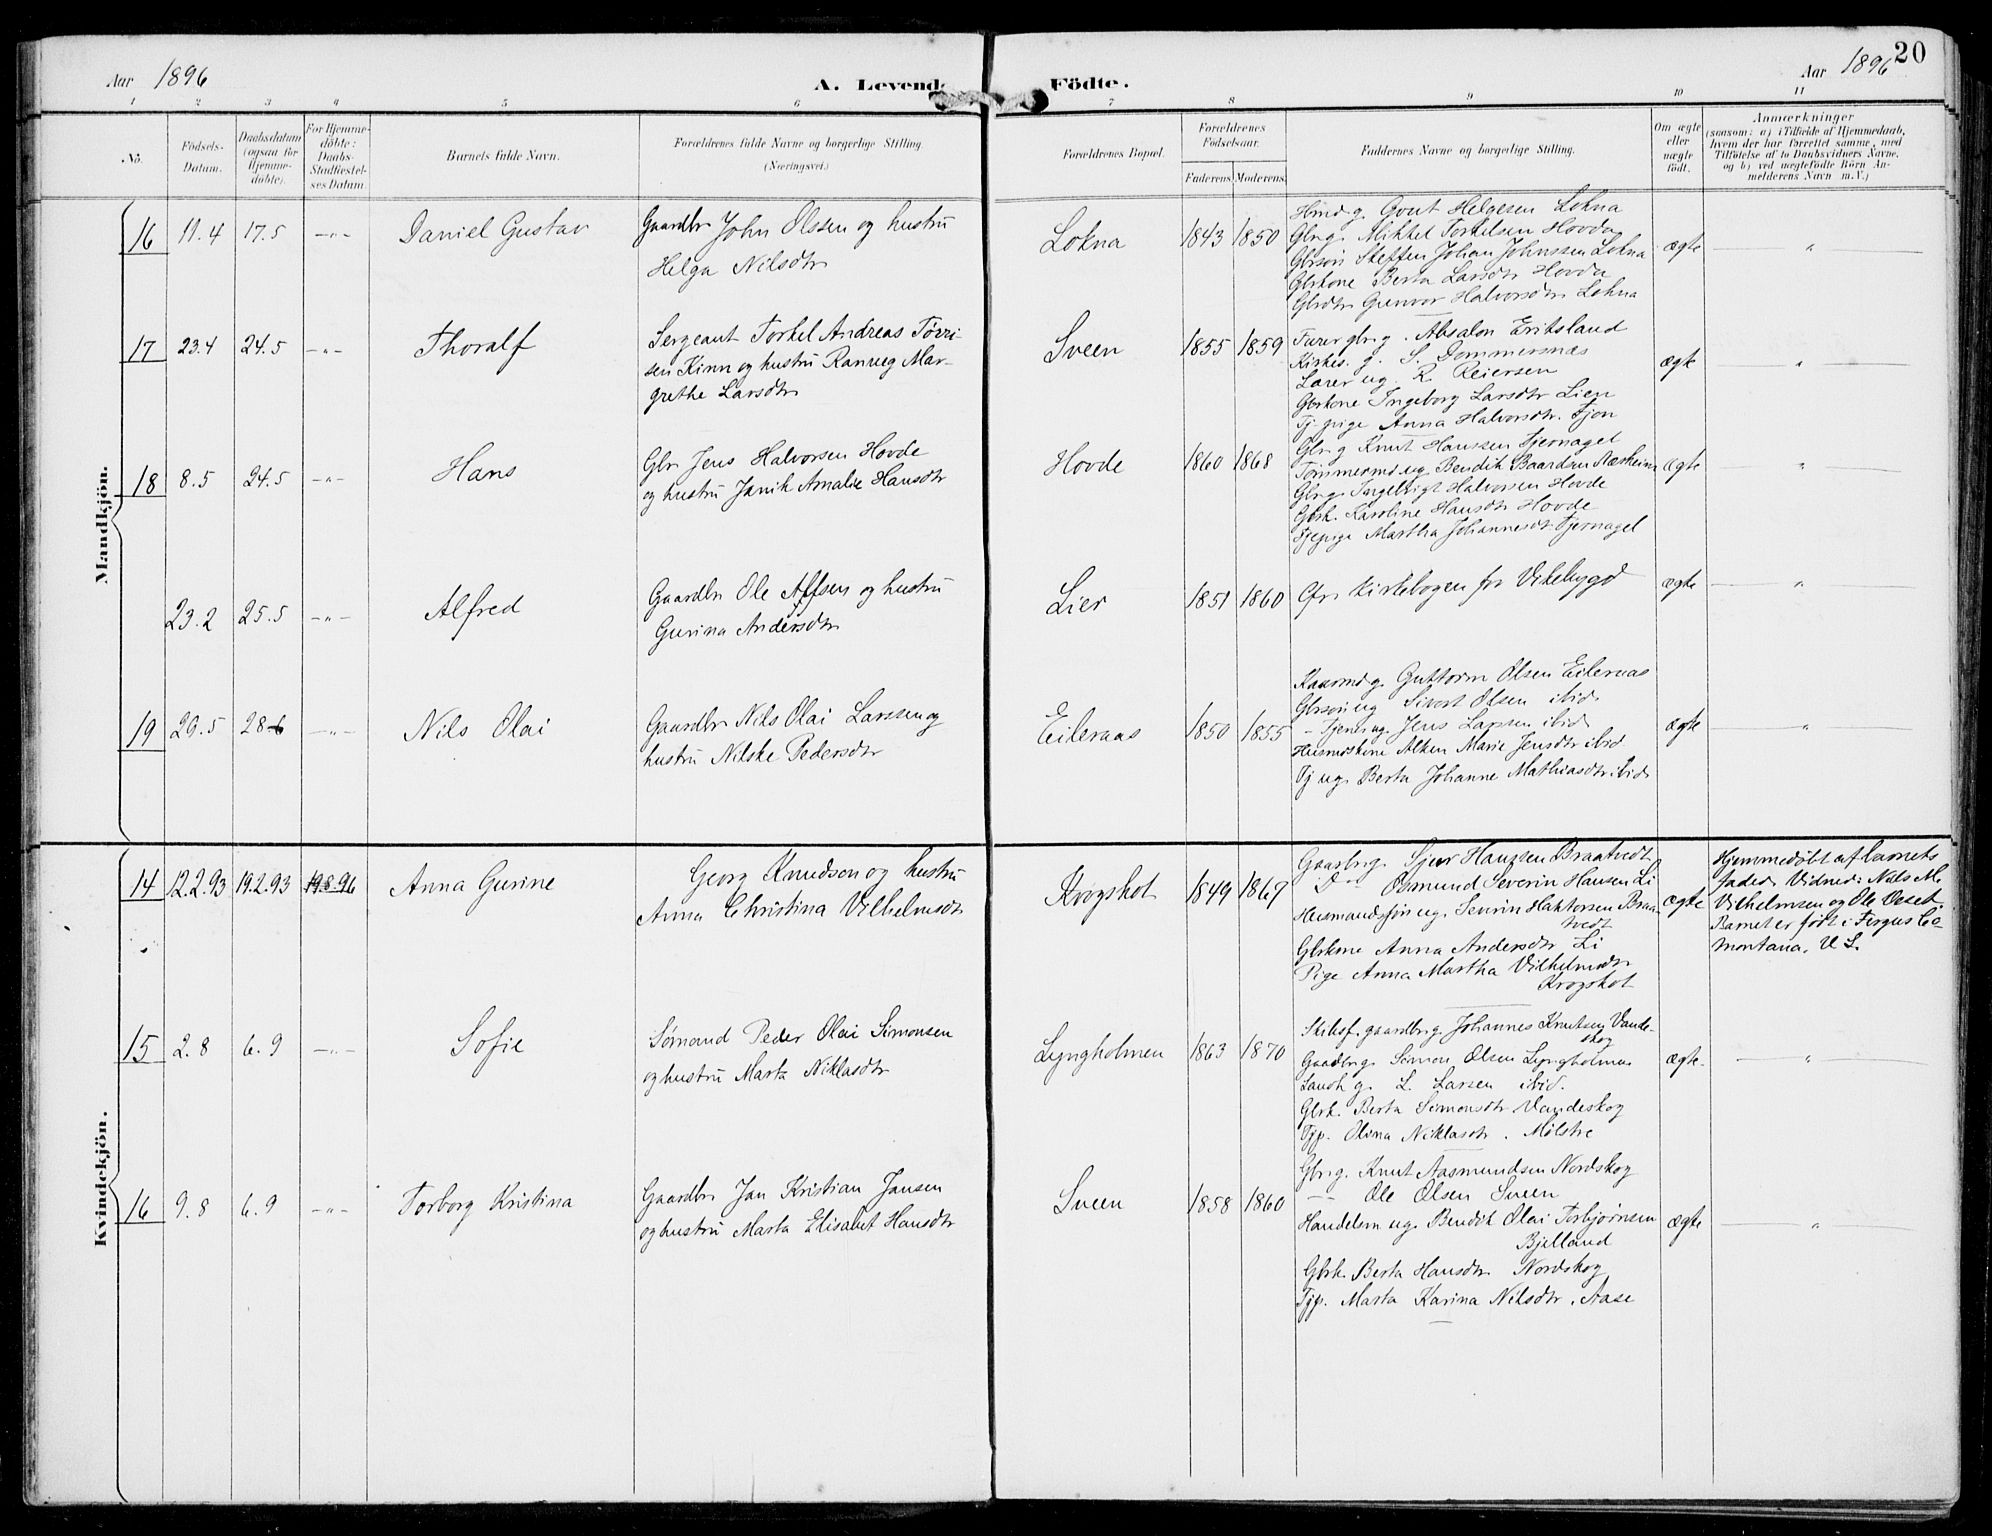 Aar 1896
A. Levende Födte.
Aar 1896
20
1 2 3 4 5 6 7 8 9 10 11
No.
Födsels-Datum.
Daabsdatum (ogsaa for Hjemme-döbte).
For Hjemme-döbte: Daabs-Stadfæstel-ses Datum.
Barnets fulde Navn.
Forældrenes fulde Navne og borgerlige Stilling.
(Næringsvei.)
Forældrenes Bopæl.
Forældrenes Födselsaar.
Faderens. Moderens.
Faddernes Navne og borgerlige Stilling.
Om ægte eller uægte födt.
Anmærkninger
(saasom: a) i Tilfælde af Hjemmedaab,
hvem der har forrettet samme, med
Tilföielse af to Daabsvidners Navne,
og b) ved uægtefödte Börn An-
melderens Navn m. V.)
Mandkjön.
16 11.4 17.5 -"- Daniel Gustav
Gaardbr John Olssen og hustru
Helga Nilsdtr
Lokna 1843 1850
Husmd g. Gout Helgesen Lokna
Gbr g. Mikkel Torkelsen Hovda
Gbrsøn Steffen Johan Johnssen Lokna
Gbrkone Berta Larsdtr Hovda
Gbrdtr Gunvor Halvorsdtr Lokna
ægte "
17 23.4 24.5 -"- Thoralf
Sergeant Torkel Andreas Tørri-
sen Kinn og hustru Ranveg Mar-
grethe Larsdtr
Sveen 1855 1859
Furer gbr g. Absalon Eriksland
Kirkes. g. S. Dommersnæs
Lærer ug R Reiersen
Gbrkone Ingeborg Larsdtr Lien
Tj. pige Anna Halvorsdtr. Fjon
ægte "
18 8.5 24.5 -"- Hans
Gbr Jens Halvorsen Hovde
og hustru Janik Amalie Hansdtr
Hovde 1860 1868
Gbr g Knut Hanssen Tjernagel
Tømmermd ug. Bendik Baardsen Næsheim
Gbr g. Ingebrigt Halvorsen Hovde
Gbrk. Karoline Hansdtr Hovde
Tjepige Martha Johannesdtr Tjernagel
ægte "
23.2 25.5 -"- Alfred
Gaardbr Ole Affsen og hustru
Gurina Andersdtr
Lier 1851 1860
Cfr. Kirkebogen for Vikebygd
ægte "
19 29.5 28-6 -"- Nils Olai
Gaardbr Nils Olai Larssen og
hustru Nilske Pedersdtr
Eileraas 1850 1855
Kaarmd g. Guttorm Olsen Eileraas
Gbrsøn ug Sivert Olsen ibid.
- Tjener ug. Jens Larsen ibid
Husmdskone Alken Marie Jensdtr ibid
Tj ug. Berta Johanne Mathiasdtr ibid.
ægte "
Kvindekjön.
14 12.2.93 19.2.93 19.8.96 Anna Gurine
Georg Knudsen og hustru
Anna Christina Vilhelmsdtr
Krogskot 1849 1867
Gaardbr g. Sjur Hanssen Braatvedt
Do Osmund Severin Hansen Li
Husmandssøn ug. Severin Haktorsen Braa-
tvedt
Gbrkone Anna Andersdtr Li
Pige Anna Martha Vilhelmsdtr
Krogskot
ægte
Hjemmedøbt af barnets
fader. Vidner: Nils M.
Vilhelmsen og Ole Veset.
Barnet er født i Fergus Co
Montana. U S.
15 2.8 6.9 -"- Sofie
Sømand Peder Olai Simonsen
og hustru Marta Niklasdtr
Lyngholmen 1863 1870
Skibsf. gaardbr g. Johannes Knutsen Vande-
skog
Gaardbr g. Simon Olsen Lyngholmen
Landh g. L. Larsen ibid.
Gbrk. Berta Simonsdtr Vandeskog
Tjp. Olina Niklasdtr. Mølstre
ægte "
16 9.8 6.9 -"- Torborg Kristina
Gaardbr Jan Kristian Jansen
og hustru Marta Elisabet Hansdtr
Sveen 1858 1860
Gbr g. Knut Aasmundsen Nordskog
-- Ole Olsen Sveen
Handelsm ug. Bendik Olai Torbjørnsen
Bjelland
Gbrk. Berta Hansdtr Nordskog
Tjp. Marta Karina Nilsdtr. Aase
ægte "